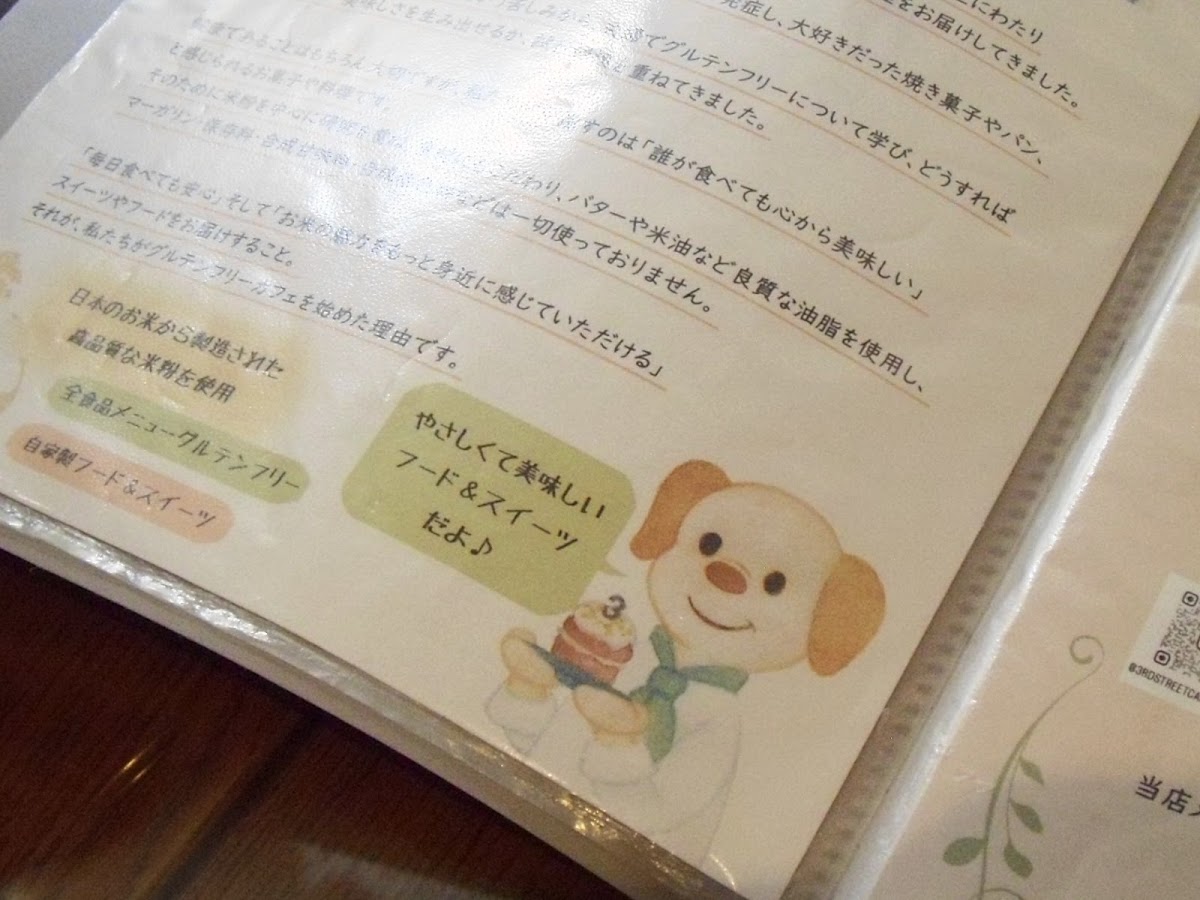 にわたり
をお届けしてきました。
発症し、大好きだった焼き菓子やパン、
苦しみから、
でグルテンフリーについて学び、どうすれば
美味しさを生み出せるか、
重ねてきました。
であることはもちろん大切ですが、
すのは「誰が食べても心から美味しい」
と感じられるお菓子や料理です。
そのために米粉を中心に
わり、バターや米油など良質な油脂を使用し、
マーガリン・保存料・合成甘味料・
などは一切使っておりません。
「毎日食べても安心」そして「お米の魅力をもっと身近に感じていただける」
スイーツやフードをお届けすること。
それが、私たちがグルテンフリーカフェを始めた理由です。
日本のお米から製造された
高品質な米粉を使用
全食品メニューグルテンフリー
自家製フード&スイーツ
やさしくて美味しい
フード&スイーツ
だよ♪
3
@3RDSTREETCA
当店